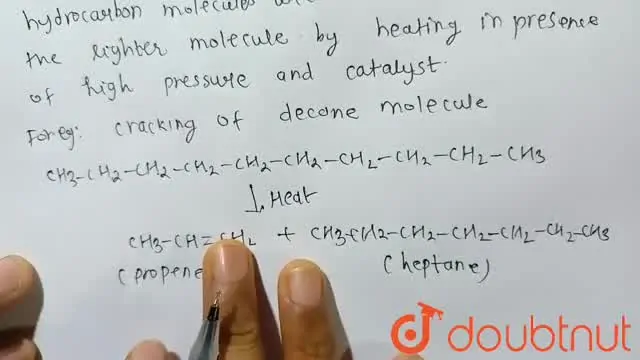 hydrocarbon molecules
the lighter molecule by heating in presence
of high pressure and catalyst.
For eg: cracking of decone molecule
CH3-CH2-CH2-CH2-CH2-CH2-CH2-CH2-CH2-CH3
↓ Heat
CH3-CH=CH2 + CH3-CH2-CH2-CH2-CH2-CH2-CH3
(propene (heptane)
doubtnut